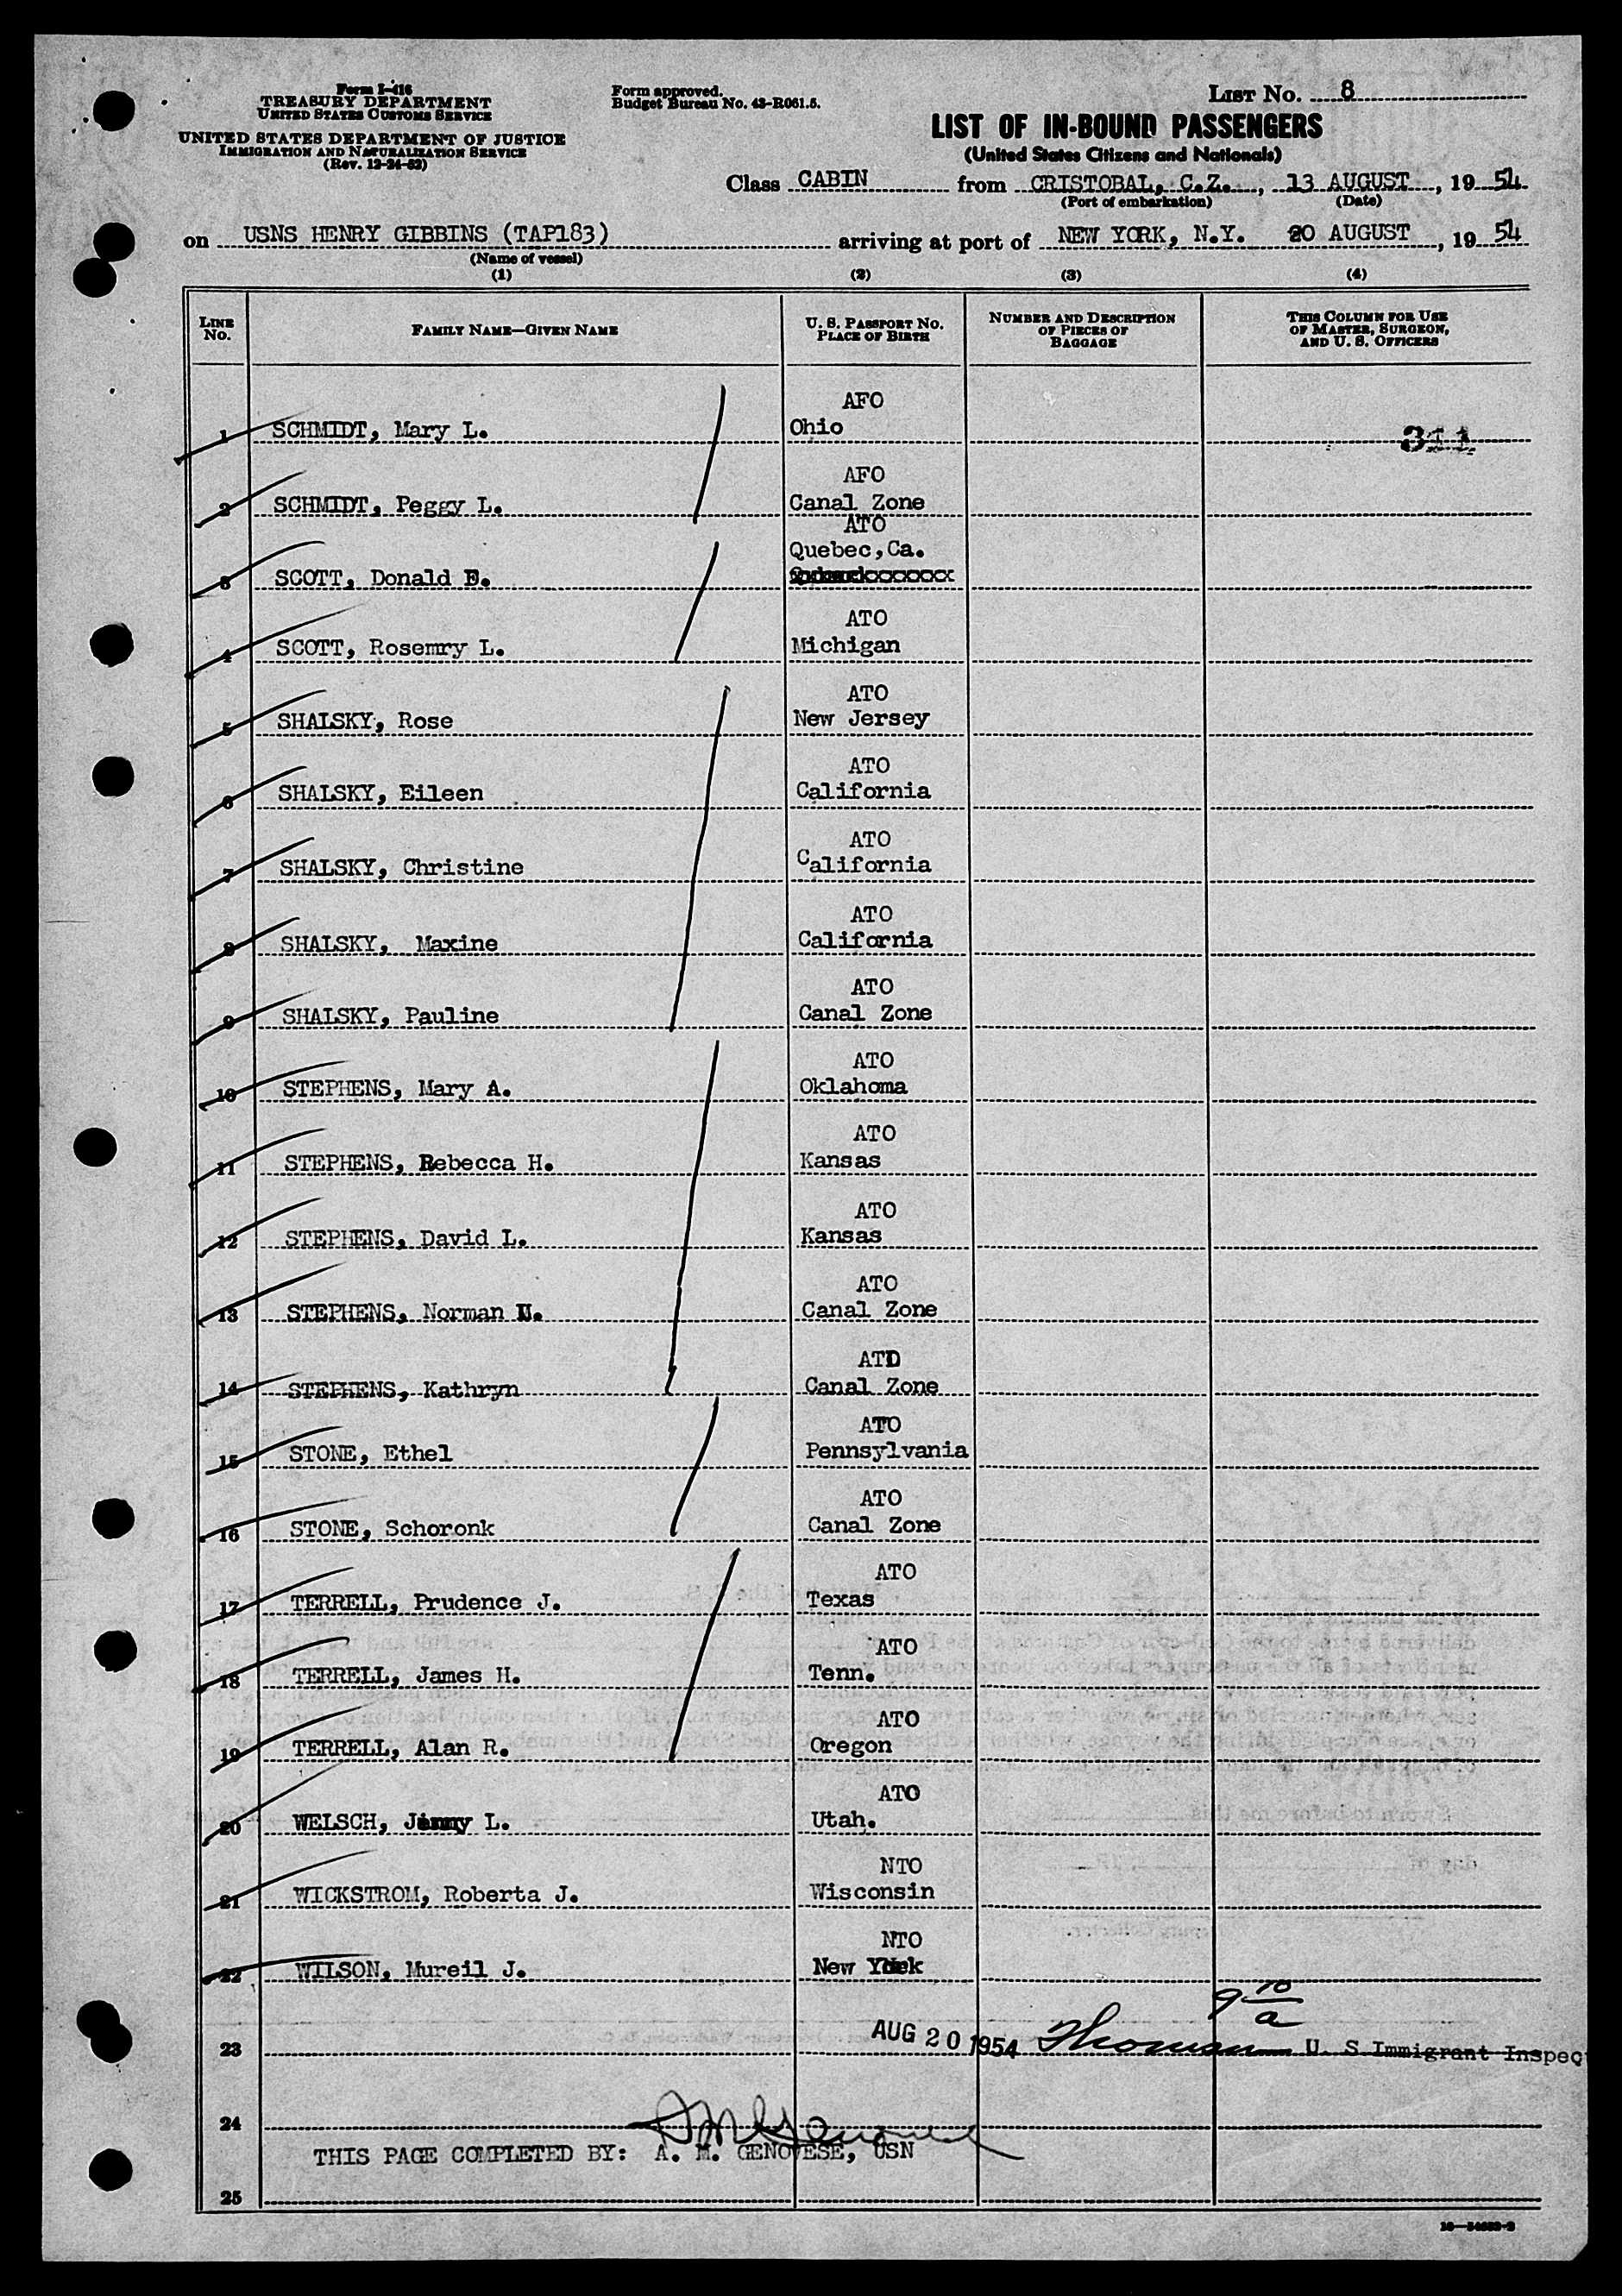 Form I-416
TREASURY DEPARTMENT
UNITED STATES CUSTOMS SERVICE
UNITED STATES DEPARTMENT OF JUSTICE
IMMIGRATION AND NATURALIZATION SERVICE
(Rev. 12-24-52)
Form approved.
Budget Bureau No. 43-R061.5.
LIST No. 8
LIST OF IN-BOUND PASSENGERS
(United States Citizens and Nationals)
Class CABIN from CRISTOBAL, C.Z., 13 AUGUST, 1954
(Port of embarkation) (Date)
on USNS HENRY GIBBINS (TAP183) arriving at port of NEW YORK, N.Y. 20 AUGUST, 1954
(Name of vessel)
(1) (2) (3) (4)
LINE No. FAMILY NAME—GIVEN NAME U. S. PASSPORT NO. PLACE OF BIRTH NUMBER AND DESCRIPTION OF PIECES OF BAGGAGE THIS COLUMN FOR USE OF MASTER, SURGEON, AND U. S. OFFICERS
AFO
1 SCHMIDT, Mary L. Ohio 311
AFO
2 SCHMIDT, Peggy L. Canal Zone
ATO
Quebec, Ca.
3 SCOTT, Donald E.
ATO
4 SCOTT, Rosemry L. Michigan
ATO
5 SHALSKY, Rose New Jersey
ATO
6 SHALSKY, Eileen California
ATO
7 SHALSKY, Christine California
ATO
8 SHALSKY, Maxine California
ATO
9 SHALSKY, Pauline Canal Zone
ATO
10 STEPHENS, Mary A. Oklahoma
ATO
11 STEPHENS, Rebecca H. Kansas
ATO
12 STEPHENS, David L. Kansas
ATO
13 STEPHENS, Norman Canal Zone
ATO
14 STEPHENS, Kathryn Canal Zone
ATO
15 STONE, Ethel Pennsylvania
ATO
16 STONE, Schoronk Canal Zone
ATO
17 TERRELL, Prudence J. Texas
ATO
18 TERRELL, James H. Tenn.
ATO
19 TERRELL, Alan R. Oregon
ATO
20 WELSCH, L. Utah.
NTO
21 WICKSTROM, Roberta J. Wisconsin
NTO
22 WILSON, Mureil J. New York
9 10/a
23 AUG 20 1954 Thoman U. S Immigrant Inspec
24
THIS PAGE COMPLETED BY: A. M. GENOVESE, USN
25